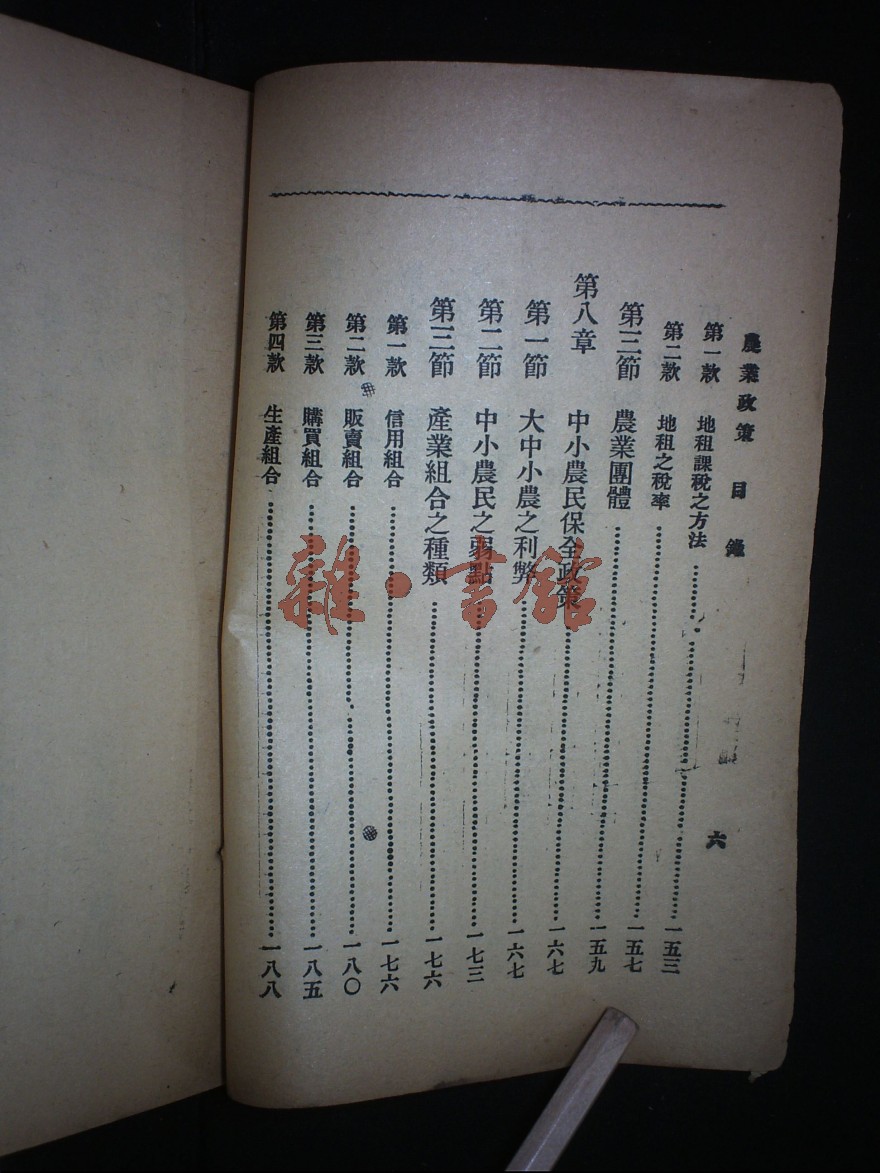 農業政策 目錄 六
第一款 地租課稅之方法 一五三
第二款 地租之稅率 一五七
第三節 農業團體 一五九
第八章 中小農民保全政策 一六七
第一節 大中小農之利弊 一六七
第二節 中小農民之弱點 一七三
第三節 產業組合之種類 一七六
第一款 信用組合 一七六
第二款 販賣組合 一八〇
第三款 購買組合 一八五
第四款 生產組合 一八八
雜·書館